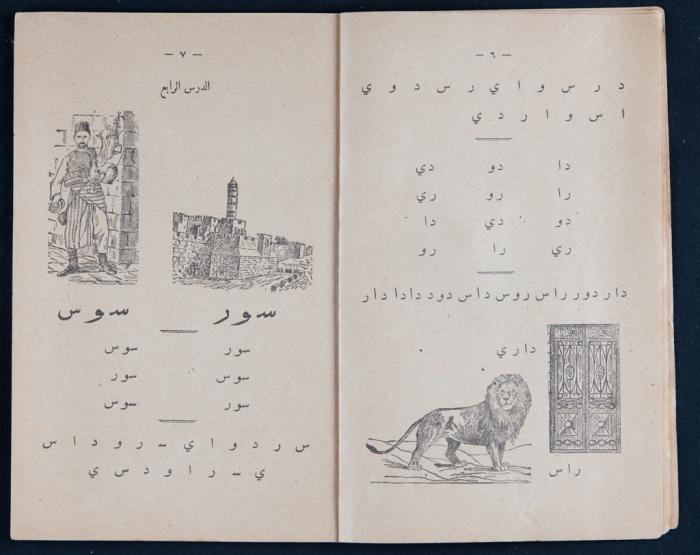 — ٦ —
د ر س و ا ي ر س د و ي
ا س و ا ر د ي
دا دو دي
را رو ري
دو دي دا
ري را رو
دار دور راس روس داس دود دادا دار
داري
راس
— ٧ —
الدرس الرابع
سور سوس
سور سوس
سوس سور
سور سوس
س ر د و ا ي – ر و د ا س
ي – ر ا و د س ي